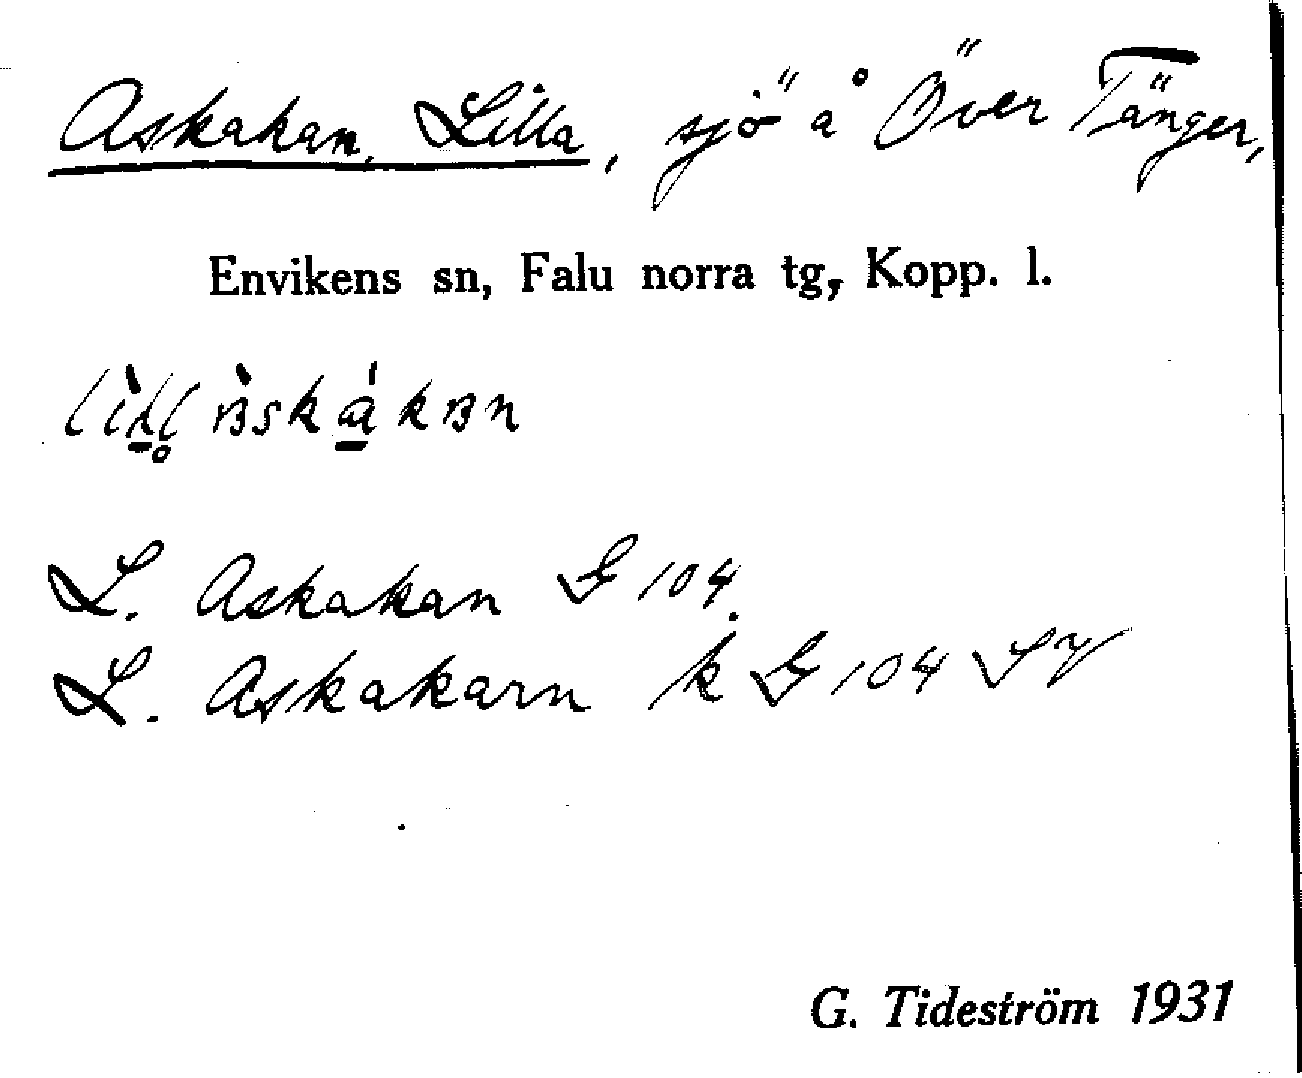 Askakan, Lilla, sjö å Över Tänger,
Envikens sn, Falu norra tg, Kopp. l.
L. Askakan G 104.
L. Askakarn k G 104 SV
G. Tideström 1931